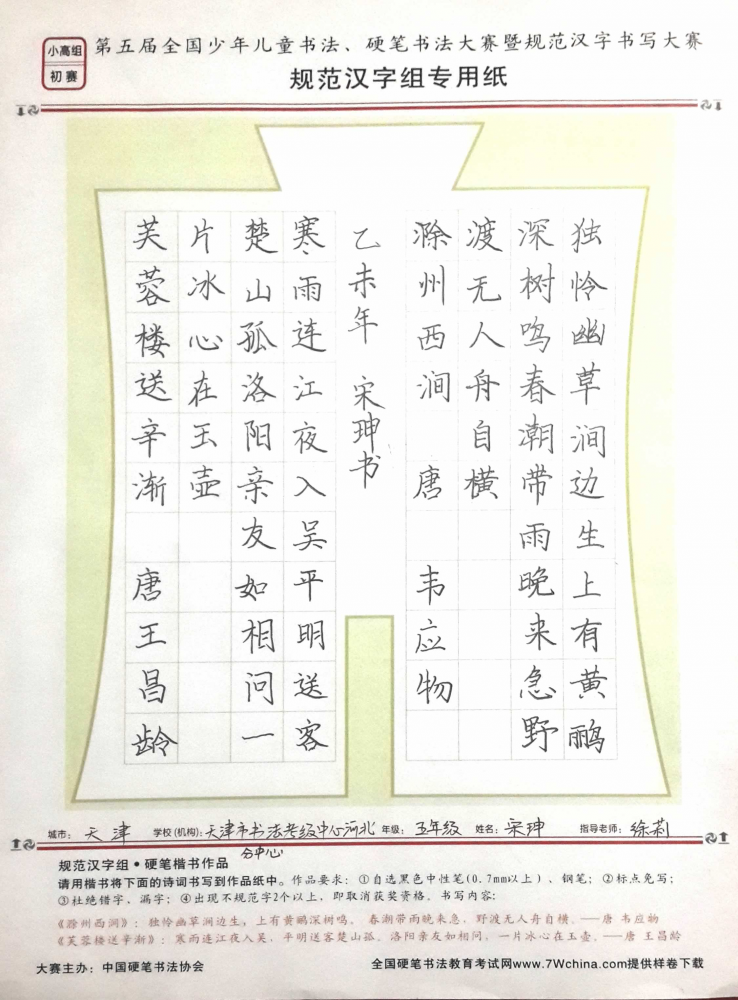 小高组
初赛
第五届全国少年儿童书法、硬笔书法大赛暨规范汉字书写大赛
规范汉字组专用纸
独怜幽草涧边生上有黄鹂
深树鸣春潮带雨晚来急野
渡无人舟自横
滁州西涧 唐 韦应物
乙未年 宋珅书
寒雨连江夜入吴平明送客
楚山孤洛阳亲友如相问一
片冰心在玉壶
芙蓉楼送辛渐 唐王昌龄
城市：天津 学校(机构)：天津市书法考级中心河北分中心 年级：五年级 姓名：宋珅 指导老师：徐莉
规范汉字组·硬笔楷书作品
请用楷书将下面的诗词书写到作品纸中。作品要求：①自选黑色中性笔(0.7mm以上)、钢笔；②标点免写；
③杜绝错字、漏字；④出现不规范字2个以上，即取消获奖资格。书写内容：
《滁州西涧》：独怜幽草涧边生，上有黄鹂深树鸣。春潮带雨晚来急，野渡无人舟自横。——唐 韦应物
《芙蓉楼送辛渐》：寒雨连江夜入吴，平明送客楚山孤。洛阳亲友如相问，一片冰心在玉壶。——唐 王昌龄
大赛主办：中国硬笔书法协会 全国硬笔书法教育考试网www.7Wchina.com提供样卷下载